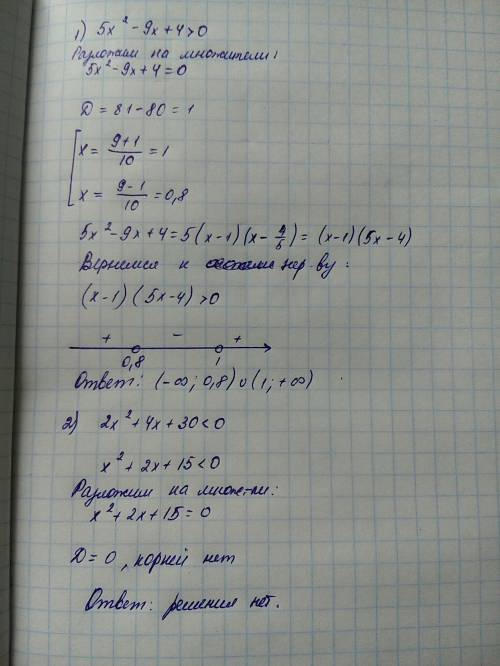 1) 5x² - 9x + 4 > 0
Разложим на множители:
5x² - 9x + 4 = 0
D = 81 - 80 = 1
x = (9+1)/10 = 1
x = (9-1)/10 = 0,8
5x² - 9x + 4 = 5(x-1)(x - 4/5) = (x-1)(5x-4)
Вернемся к нер-ву:
(x-1)(5x-4) > 0
+ - +
0,8 1
Ответ: (-∞; 0,8) ∪ (1; +∞)
2) 2x² + 4x + 30 < 0
x² + 2x + 15 < 0
Разложим на множ-тели:
x² + 2x + 15 = 0
D = 0, корней нет
Ответ: решения нет.